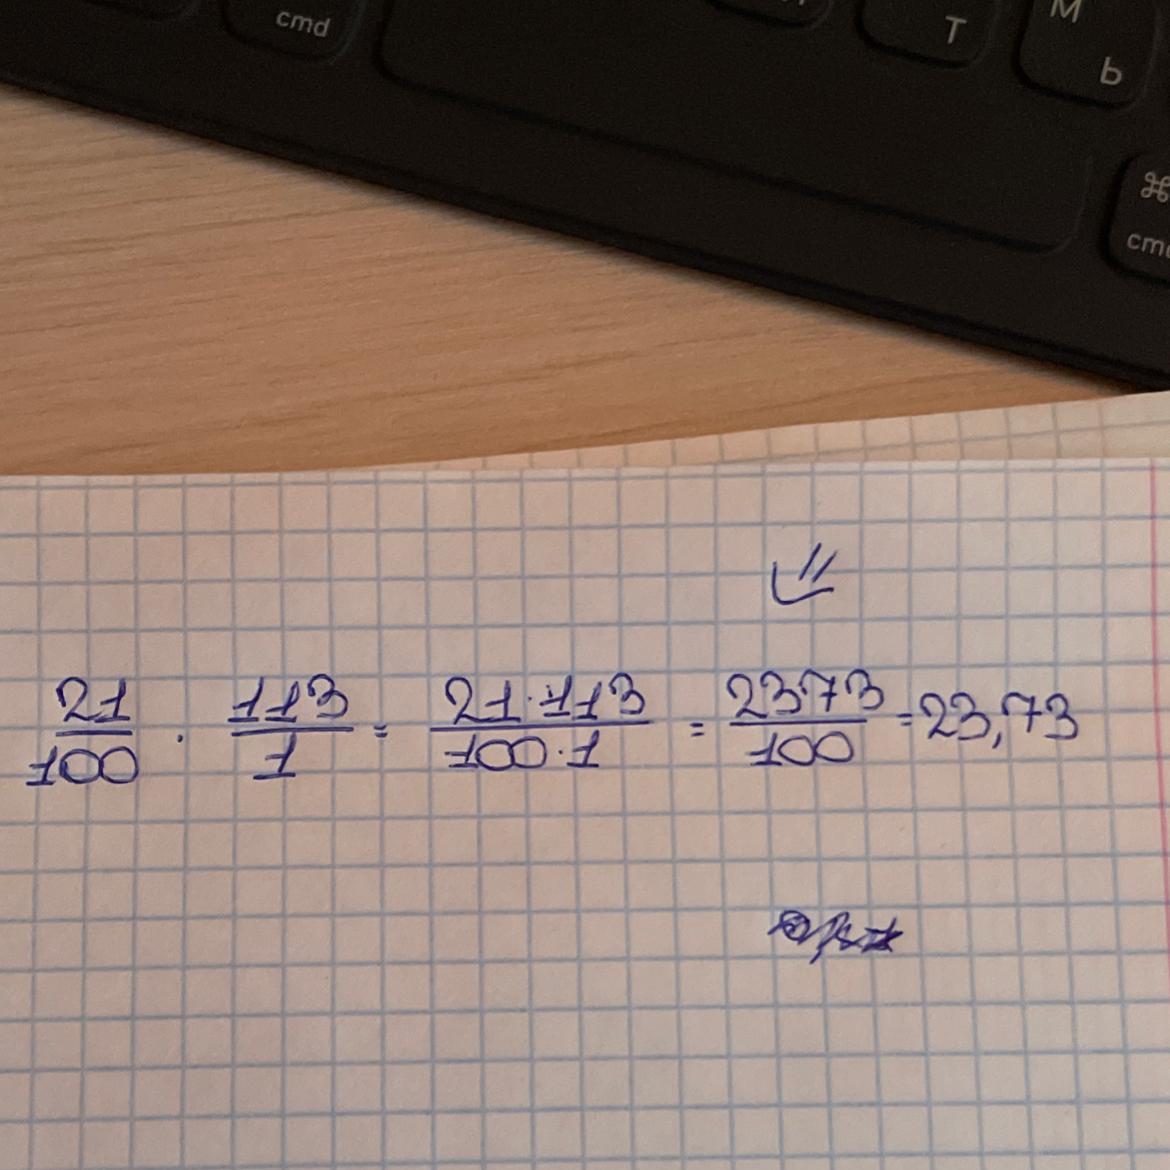 cmd
T
M
b
⌘
cmd
21/100 · 113/1 = 21·113/100·1 = 2373/100 = 23,73